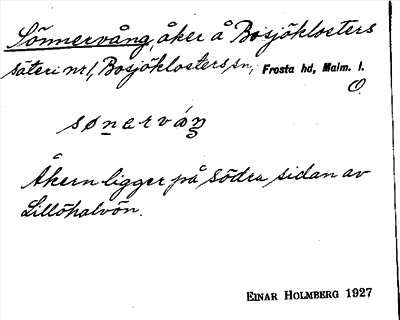 Sönnervång, åker å Bosjöklosters
säteri nr 1, Bosjöklosters sn, Frosta hd, Malm. l.
O.
sønarváŋ
Åkern ligger på södra sidan av
Lillöhalvön.
EINAR HOLMBERG 1927